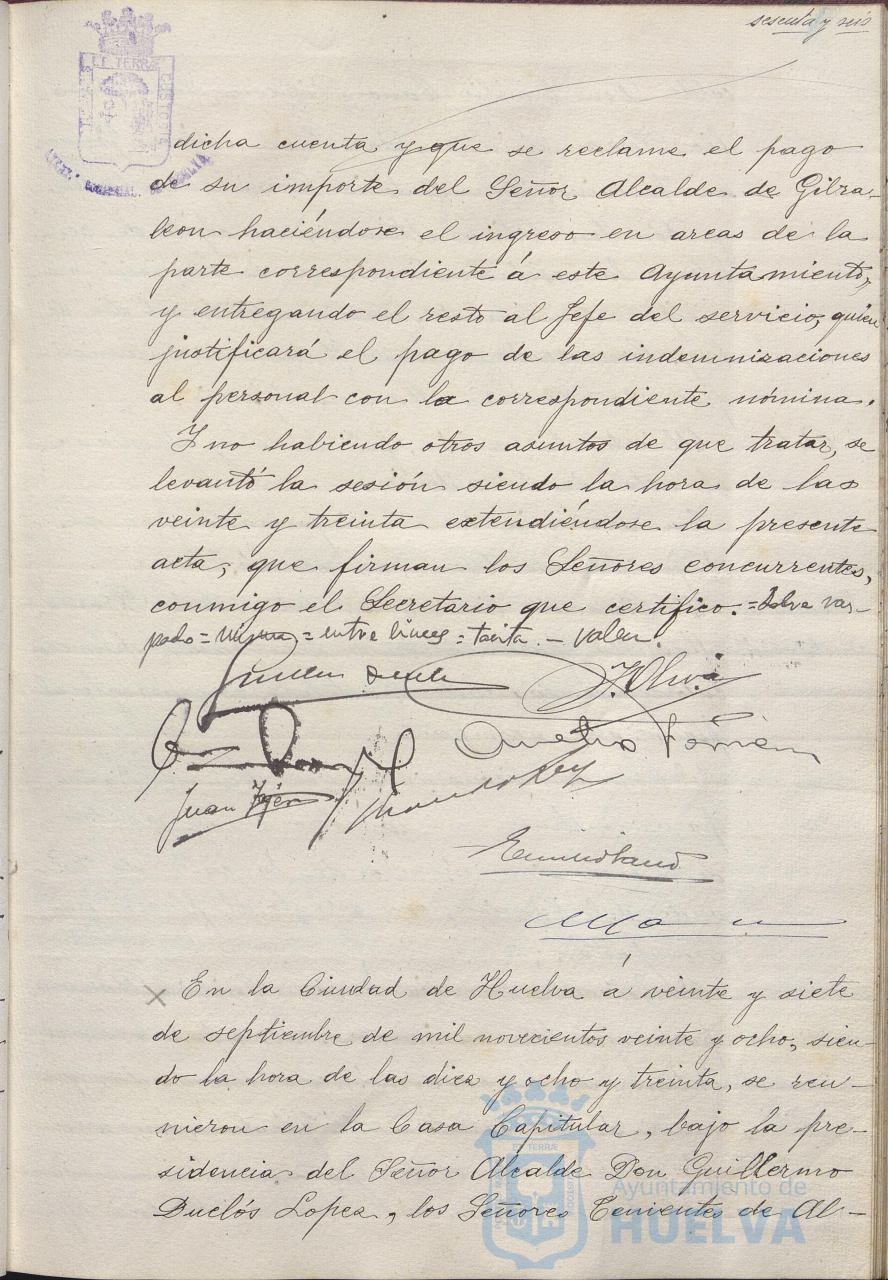 sesenta y seis
dicha cuenta y que se reclame el pago
de su importe del Señor Alcalde de Gibra-
leon haciéndose el ingreso en arcas de la
parte correspondiente á este Ayuntamiento,
y entregando el resto al Jefe del servicio, quien
justificará el pago de las indemnizaciones
al personal con la correspondiente nómina.
Y no habiendo otros asuntos de que tratar, se
levantó la sesión siendo la hora de las
veinte y treinta extendiéndose la presente
acta, que firman los Señores concurrentes,
conmigo el Secretario que certifico. =
= entre lineas = = valen
J. Oliva
Juan
En la Ciudad de Huelva á veinte y siete
de septiembre de mil novecientos veinte y ocho, sien-
do la hora de las diez y ocho y treinta, se reu-
nieron en la Casa Capitular, bajo la pre-
sidencia del Señor Alcalde Don Guillermo
Duclós Lopez, los Señores Tenientes de Al-
Ayuntamiento de
HUELVA